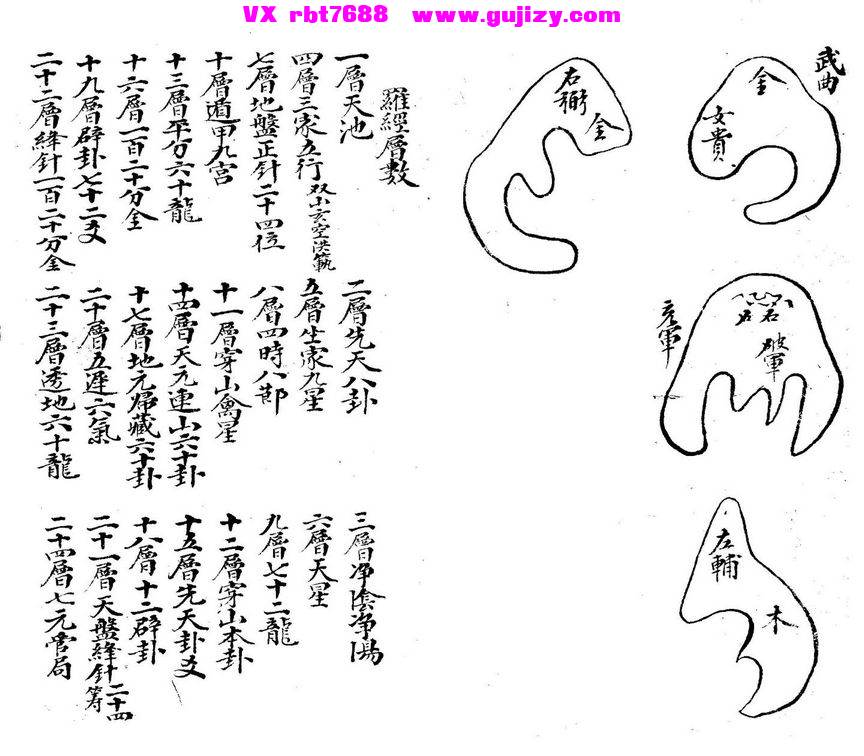 VX rbt7688 www.gujizy.com
武曲
金
女貴
右弼
金
破軍
左輔
木
羅經層數
一層天池
二層先天八卦
三層净陰净陽
四層三家五行 双小玄空洪範
五層生家九星
六層天星
七層地盤正针二十四位
八層四時八節
九層七十二龍
十層遁甲九宫
十一層穿山禽星
十二層穿山本卦
十三層平分六十龍
十四層天元連山六十卦
十五層先天卦爻
十六層一百二十分金
十七層地元歸藏六十卦
十八層十二辟卦
十九層辟卦七十二爻
二十層五運六氣
二十一層天盤縫针二十四
二十二層縫针一百二十分金
二十三層透地六十龍
二十四層七元 局